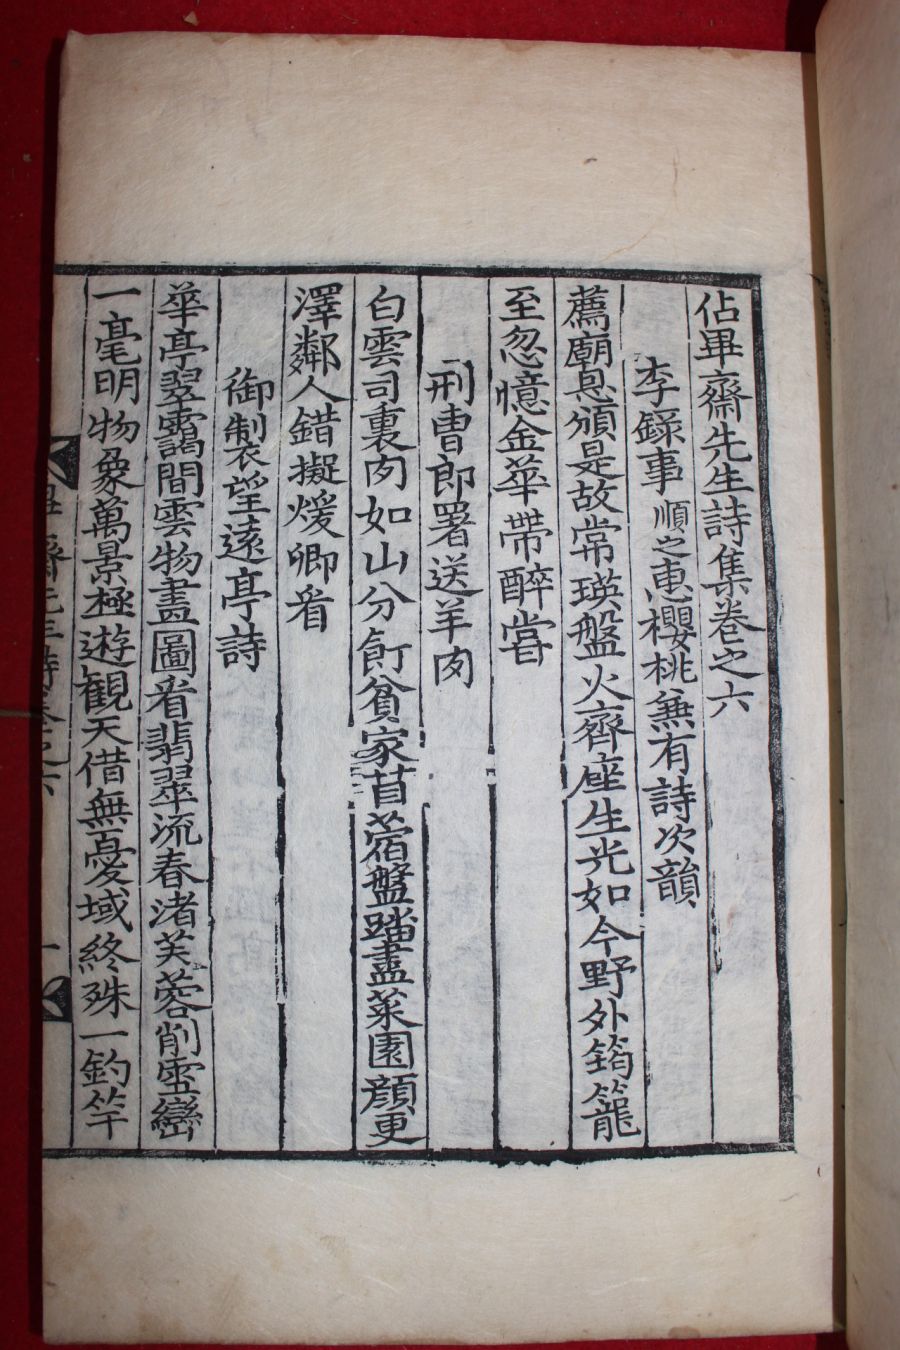 佔畢齋先生詩集卷之六
李錄事順之惠櫻桃兼有詩次韻
薦廟恩頒是故常瑛盤火齊座生光如今野外筠籠
至忽憶金華帶醉嘗
刑曹郎署送羊肉
白雲司裏肉如山分飣貧家苜蓿盤踏盡菜園顏更
澤鄰人錯擬煖卿看
御製望遠亭詩
華亭翠靄間雲物盡圖看翡翠流春渚芙蓉削雲巒
一毫明物象萬景極遊觀天借無憂域終殊一釣竿